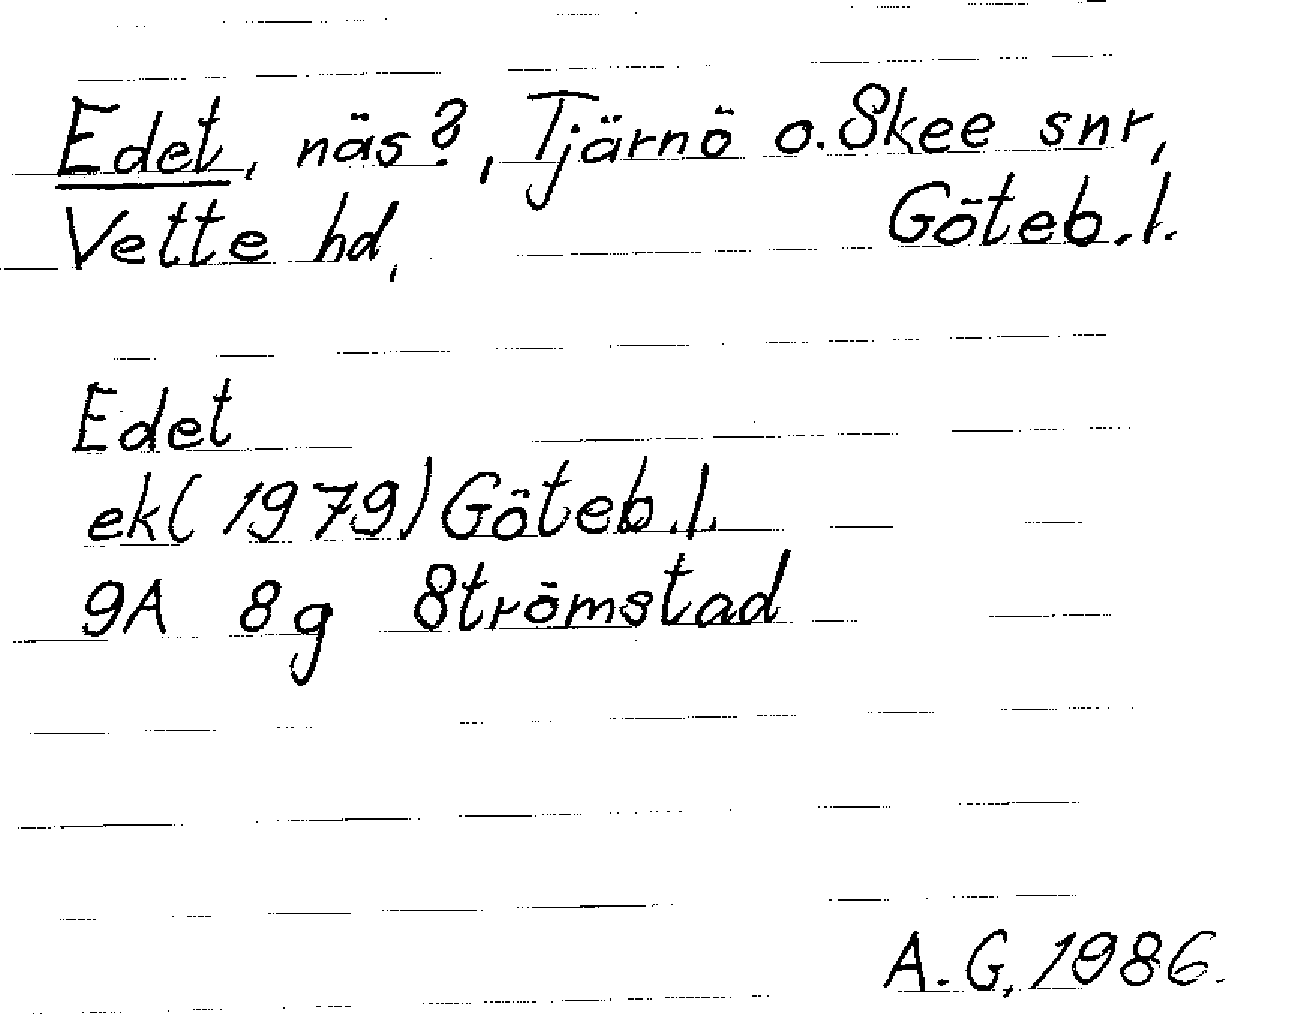 Edet, näs?, Tjärnö o. Skee snr,
Vette hd, Göteb.l.
Edet
ek (1979) Göteb.l.
9A 8g Strömstad
A.G. 1986.